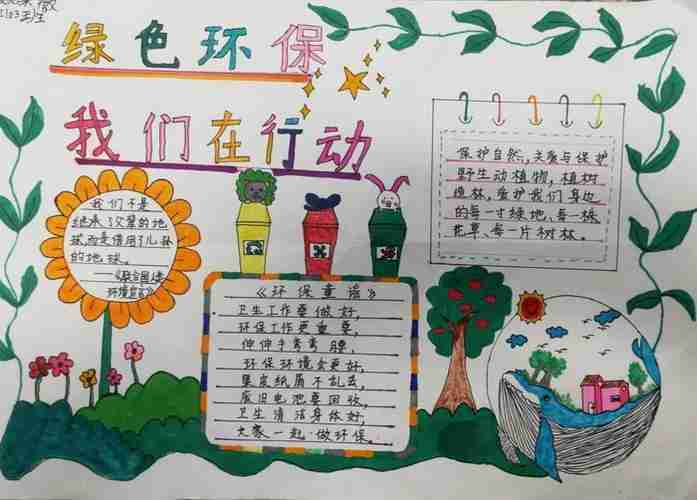 绿色环保
我们在行动
我们不是
继承父辈的地
球,而是借用了儿孙
的地球。
——《联合国人类
环境宣言》
《环保童谣》
卫生工作要做好,
环保工作更重要,
伸伸手弯弯腰,
环保环境会更好,
果皮纸屑不乱丢,
废旧电池要回收,
卫生清洁身体好,
大家一起做环保。
保护自然,关爱与保护
野生动植物,植树
造林,爱护我们身边
的每一寸绿地、每一株
花草、每一片树林。